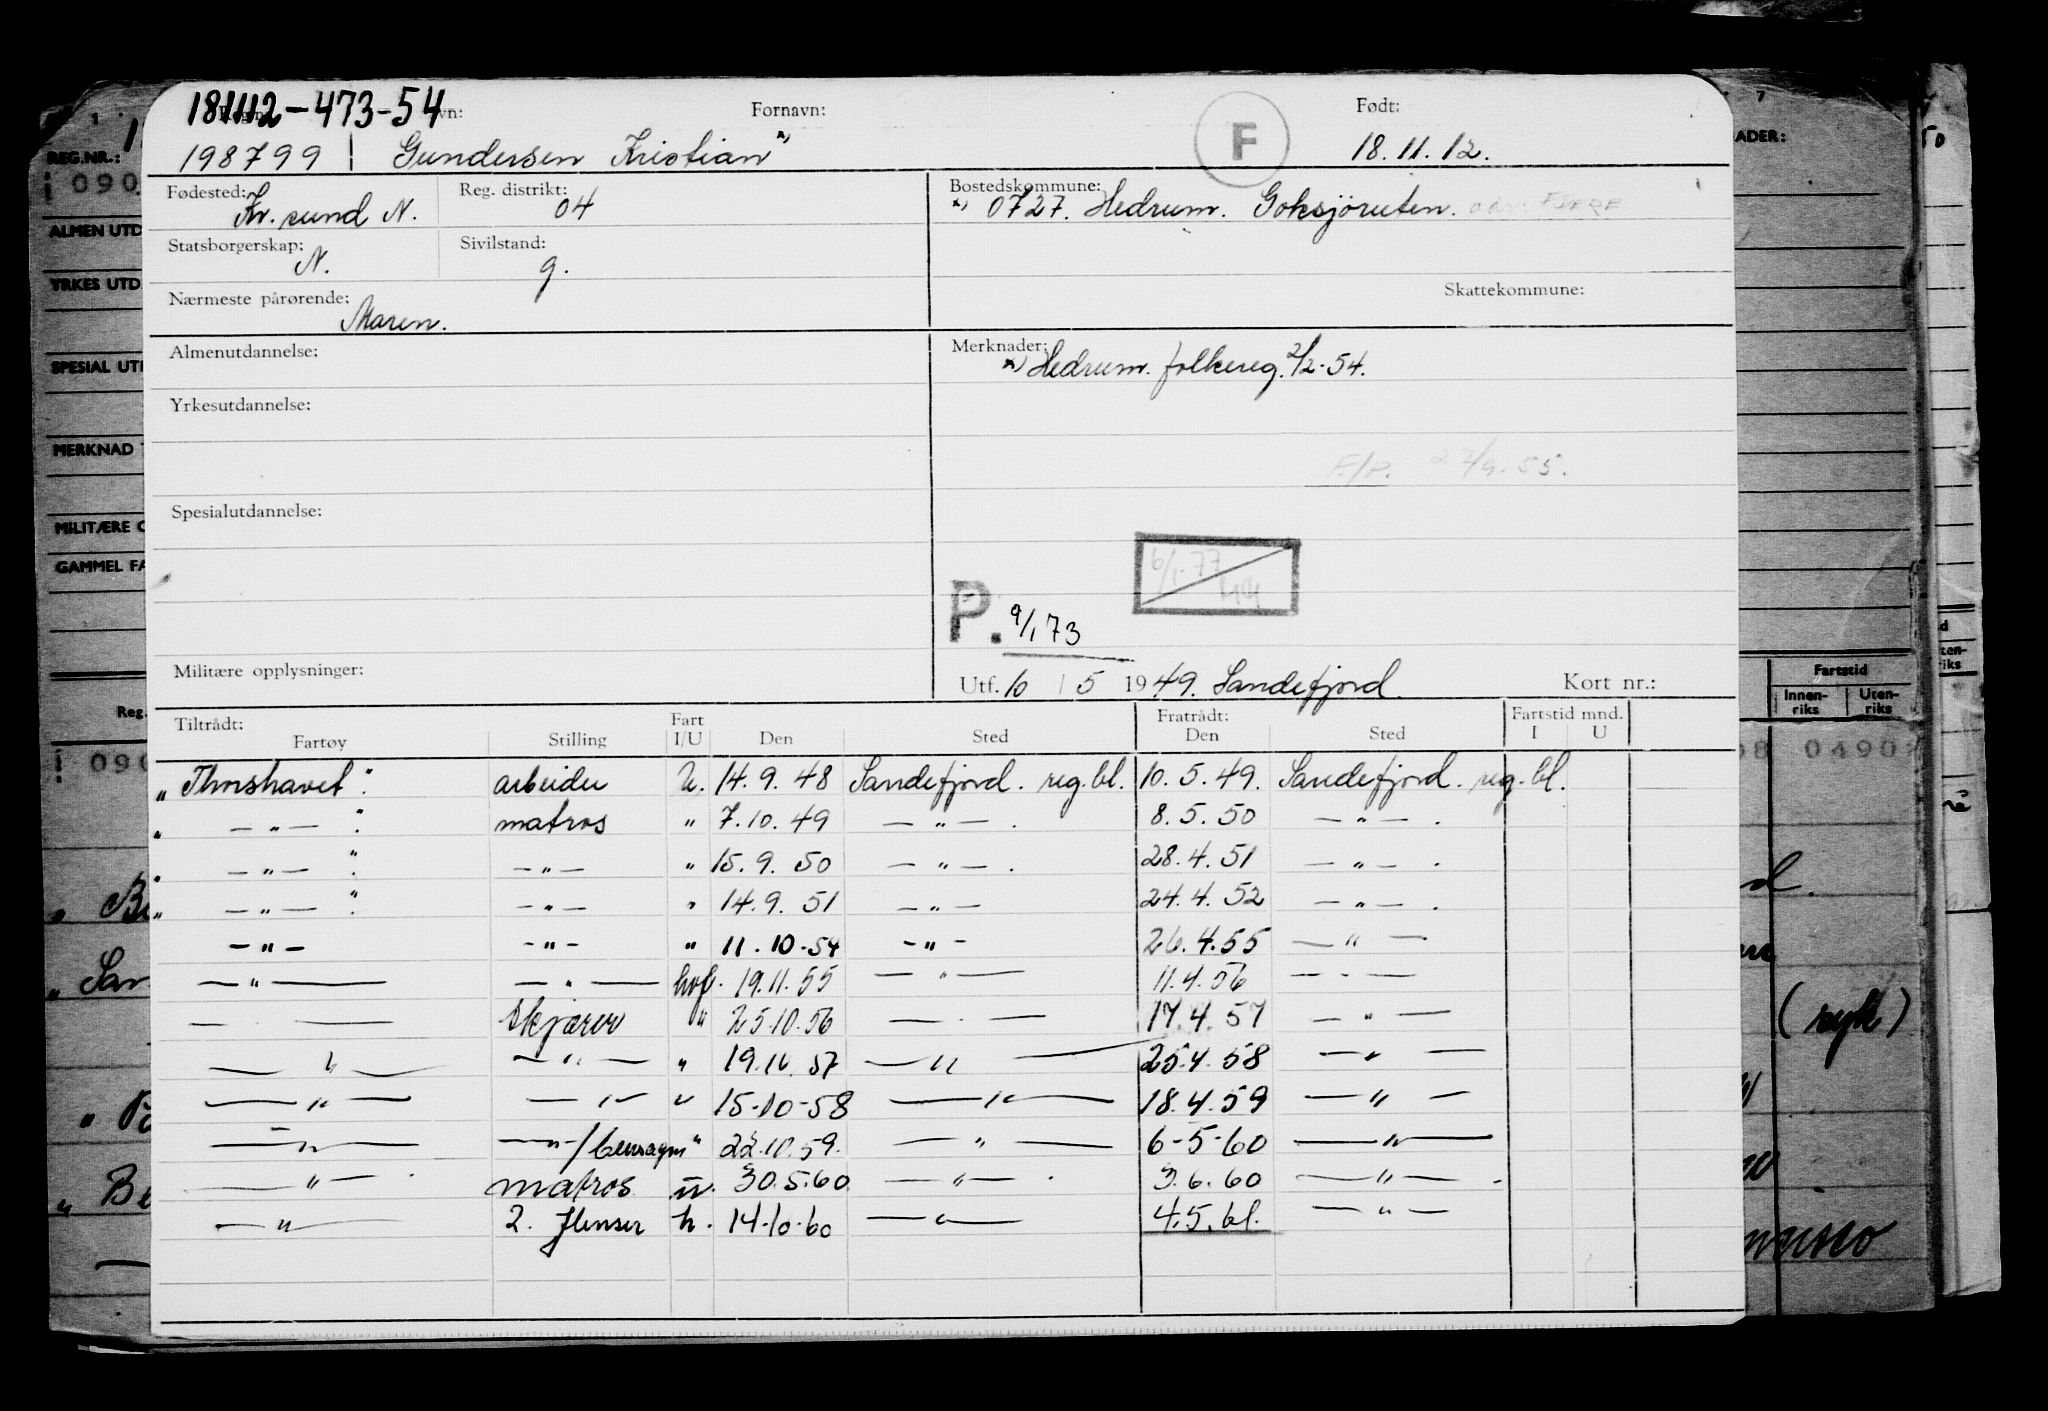 181112-473-54
Fornavn: Født:
198799 Gundersen Kristian x) F 18.11.12.
Fødested: Kr. sund N. Reg. distrikt: 04 Bostedskommune: x) 0727. Hedrum. Goksjøruten.
Statsborgerskap: N. Sivilstand: g.
Nærmeste pårørende: Maren. Skattekommune:
Almenutdannelse: Merknader: x) Hedrum. folkereg. 2/2-54.
Yrkesutdannelse:
F/P. 27/9.55.
Spesialutdannelse:
6/1.77
P. 9/1 73
Militære opplysninger: Utf. 10 / 5 1949. Sandefjord. Kort nr.:
Tiltrådt: Fart Fratrådt: Fartstid mnd.
Fartøy Stilling I/U Den Sted Den Sted I U
"Thorshavet". arbeider U. 14.9.48 Sandefjord. reg.bl. 10.5.49. Sandefjord. reg.bl.
" — " — ". matros " 7.10.49 — " — . 8.5.50 — " — .
" — " — ". — " — " 15.9.50 — " — . 28.4.51 — " — .
" — " — ". — " — " 14.9.51 — " — 24.4.52 — " — .
— " — — " — " 11.10-54 — " — 26.4.55 — " —
— " — — " — hvf. 19.11.55 — " — 11.4.56 — " —
— " — Skjærer " 25.10.56 — " — 17.4.57 — " —
— " — — " — " 19.10.57 — " — 25.4.58 — " —
— " — — " — " 15-10-58 — " — 18.4.59 — " —
— " — — " — / " 22.10.59. — " — 6-5-60 — " —
— " — matros u. 30.5.60 — " — . 3.6.60 — " — .
— " — 2. flenser h. 14-10-60 — " — 4.5.61. — " —
REG.NR.:
090
ALMEN UTD
YRKES UTD
SPECIAL UT
MERKNAD
MILITÆRE
GAMMEL FA
Reg.
090
7
ADER:
50
Fartstid
Innen-riks Uten-riks
0490
(ryk)